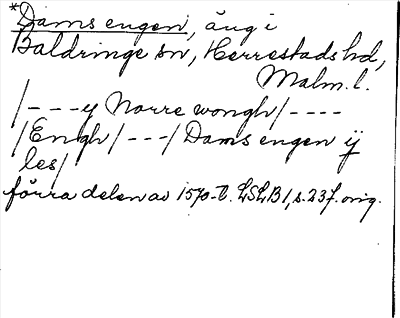 *Dams engen, äng i
Baldringe sn, Herrestads hd,
Malm. l.
/---y Norre wongh/----
/Engh/---/Dams engen ij
les/
förra delen av 1570-t. LSLB1, s. 237. orig.